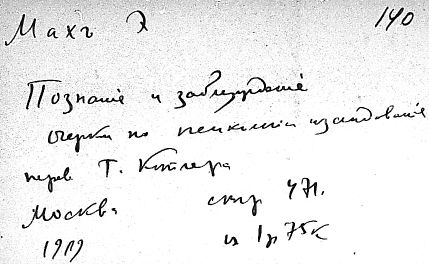 Махъ Э 140
Познаніе и заблужденіе
очерки по психологіи изслѣдованія
перев Т. Котлера
Москва стр 471.
1909 ц 1р 75к